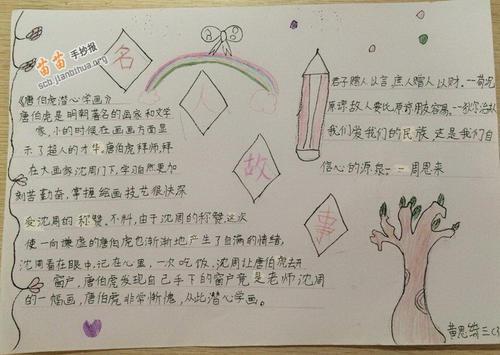 苗苗手抄报
scb.jianbihua.org
名
人
故
事
《唐伯虎潜心学画》
唐伯虎是明朝著名的画家和文学
家，小的时候在画画方面显
示了超人的才华。唐伯虎拜师，拜
在大画家沈周门下，学习自然更加
刻苦勤奋，掌握绘画技艺很快深
受沈周的称赞。不料，由于沈周的称赞，这次
使一向谦虚的唐伯虎也渐渐地产生了自满的情绪，
沈周看在眼中，记在心里，一次吃饭，沈周让唐伯虎去开
窗户，唐伯虎发现自己手下的窗户竟是老师沈周
的一幅画，唐伯虎非常惭愧，从此潜心学画。
君子赠人以言，庶人赠人以财。——荀况
原谅敌人要比原谅朋友容易。
我们爱我们的民族，这是我们自
信心的源泉——周恩来
三(3)